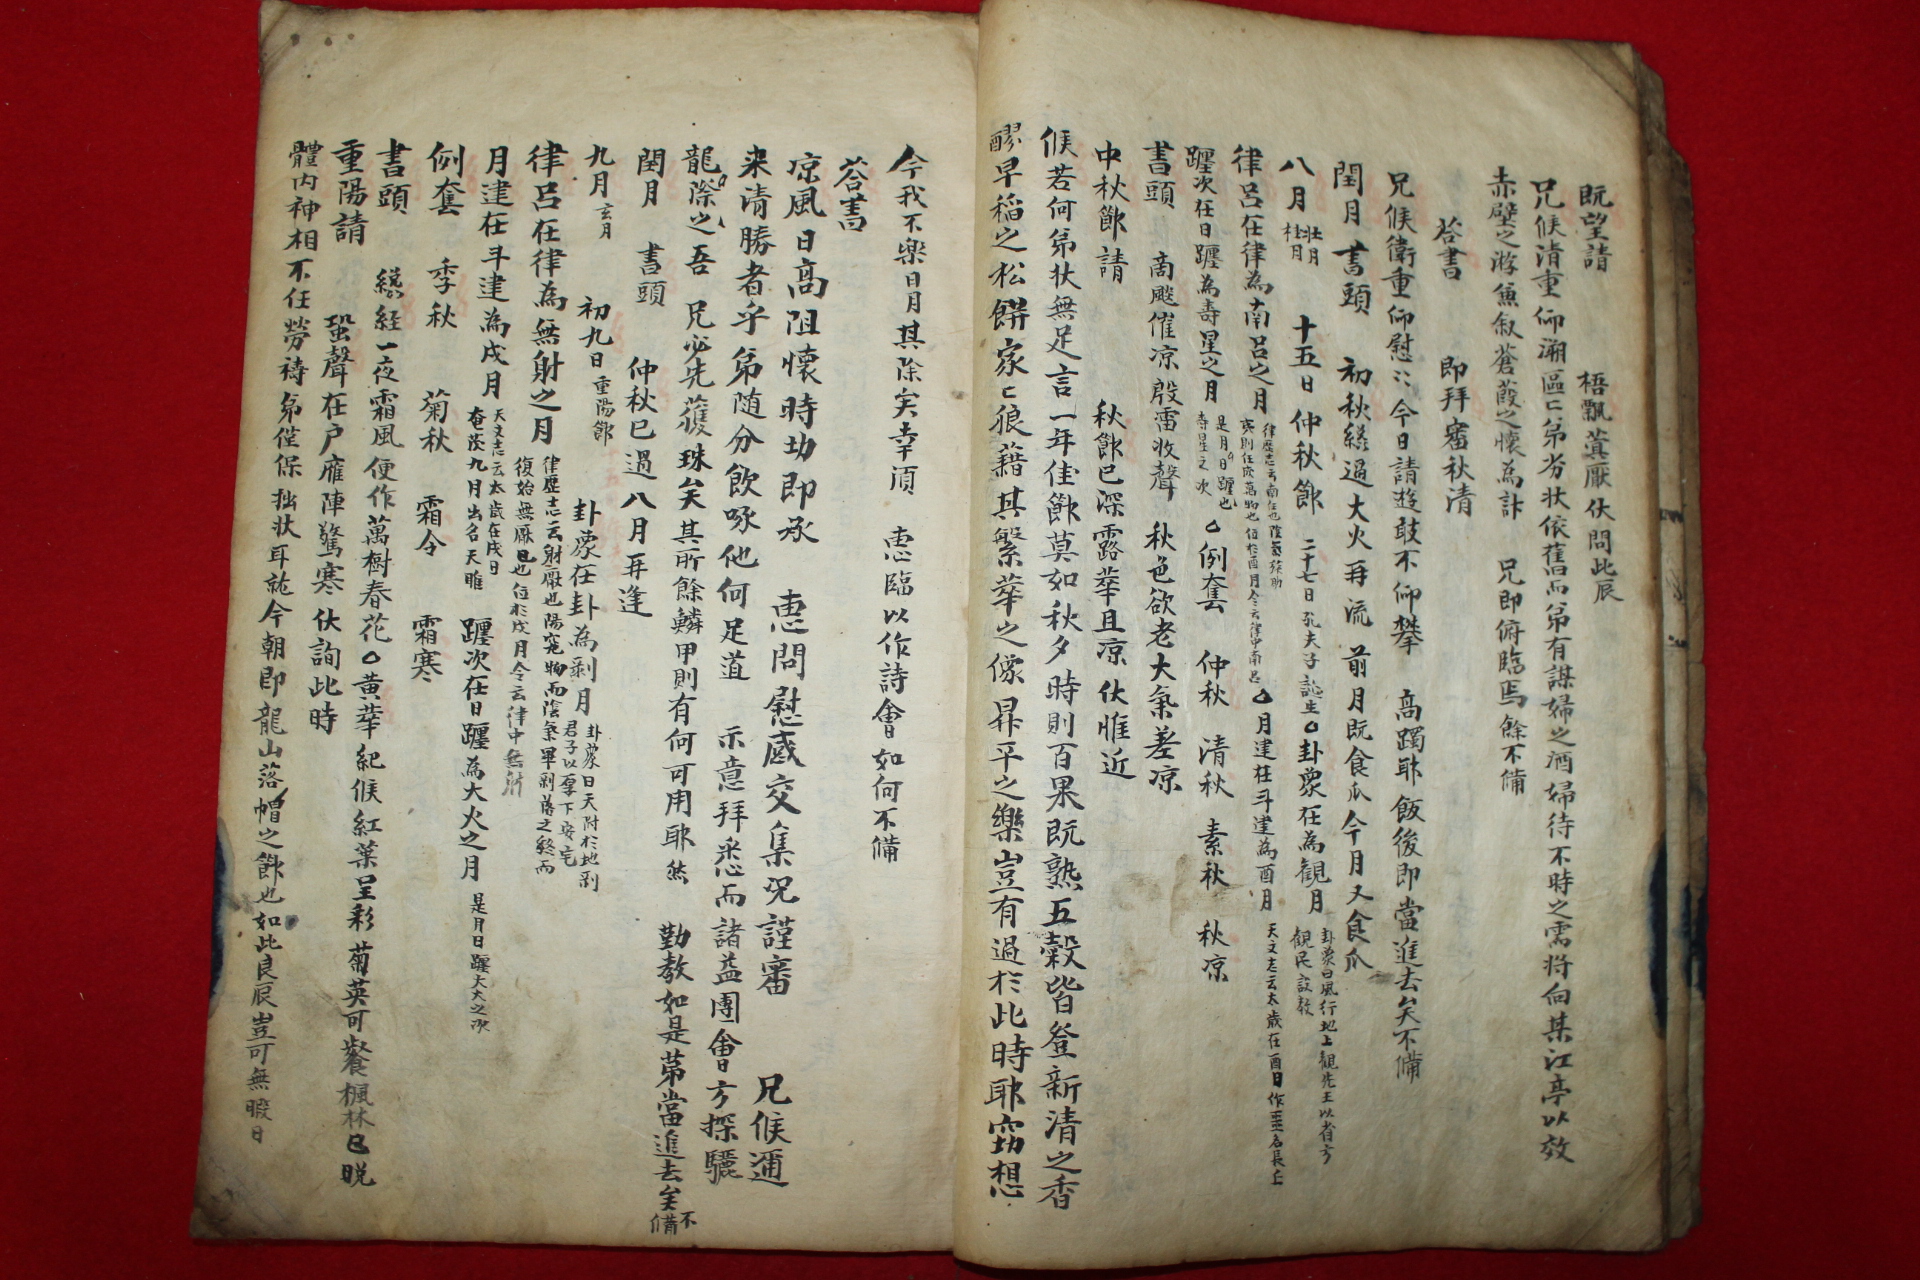 既望請　梧飄蓂厭伏問此辰
兄候清重仰溯區〻弟劣狀依舊而弟有謀婦之酒婦待不時之需將向某江亭以效
赤壁之游魚叙蒼葭之懷為計　兄即俯臨焉餘不備
答書　即拜審秋清
兄候衛重仰慰〻今日請逰敢不仰攀　高躅耶飯後即當進去矣不備
閏月　書頭　初秋纔過大火再流　前月既食瓜今月又食瓜
八月　壯月　桂月　十五日仲秋節　二十七日孔夫子誕生　卦象在為觀月　卦象曰風行地上觀先王以省方觀民設教
律呂在律為南呂之月　月建在斗建為酉月　天文志云太歲在酉日作噩名長王
躔次在日躔為壽星之月　是月日躔也壽星之次　例套　仲秋　清秋　素秋　秋凉
書頭　商飈催凉殷雷收聲　秋色欲老大氣差凉
中秋節請　秋節已深露華且凉伏惟近
候若何弟狀無足言一年佳節莫如秋夕時則百果既熟五穀皆登新清之香
醪早稲之松餠家〻狼藉其繁華之像昇平之樂豈有過於此時耶窃想
今我不樂日月其除矣幸須　惠臨以作詩會如何不備
答書
凉風日高阻懷時切即承　惠問慰感交集況謹審　兄候邇
来清勝者乎弟随分飲啄他何足道　示意拜悉而諸益團會方探驪
龍際之吾　兄必先護珠矣其所餘鱗甲則有何可用耶然　勤教如是苐當進去矣不備
閏月　書頭　仲秋已過八月再逢
九月　玄月　初九日重陽節　卦象在卦為剥月　卦象曰天附於地剥君子以厚下安宅
律呂在律為無射之月　律歷志云射厭也陽究物而陰氣畢剥落之終而復始無厭已也位於戌月令云律中無射
月建在斗建為戌月　天文志云太歲在戌日奄茂九月出名天睢　躔次在日躔為大火之月　是月日躔大火之次
例套　季秋　菊秋　霜令　霜寒
書頭　纔経一夜霜風便作萬樹春花　黄華紀候紅葉呈彩菊英可餐楓林已脱
重陽請　蛩聲在户雁陣驚寒伏詢此時
體内神相不任勞祷弟僅保拙狀耳就今朝即龍山落帽之節也如此良辰豈可無暇日